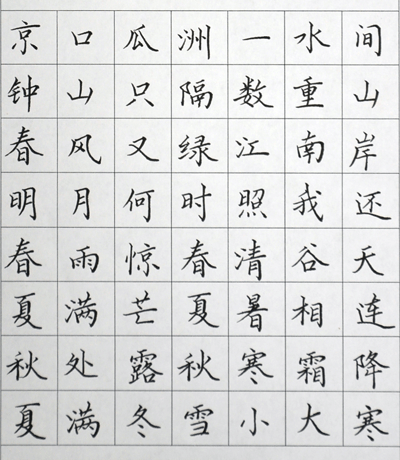 京口瓜洲一水间
钟山只隔数重山
春风又绿江南岸
明月何时照我还
春雨惊春清谷天
夏满芒夏暑相连
秋处露秋寒霜降
夏满冬雪小大寒